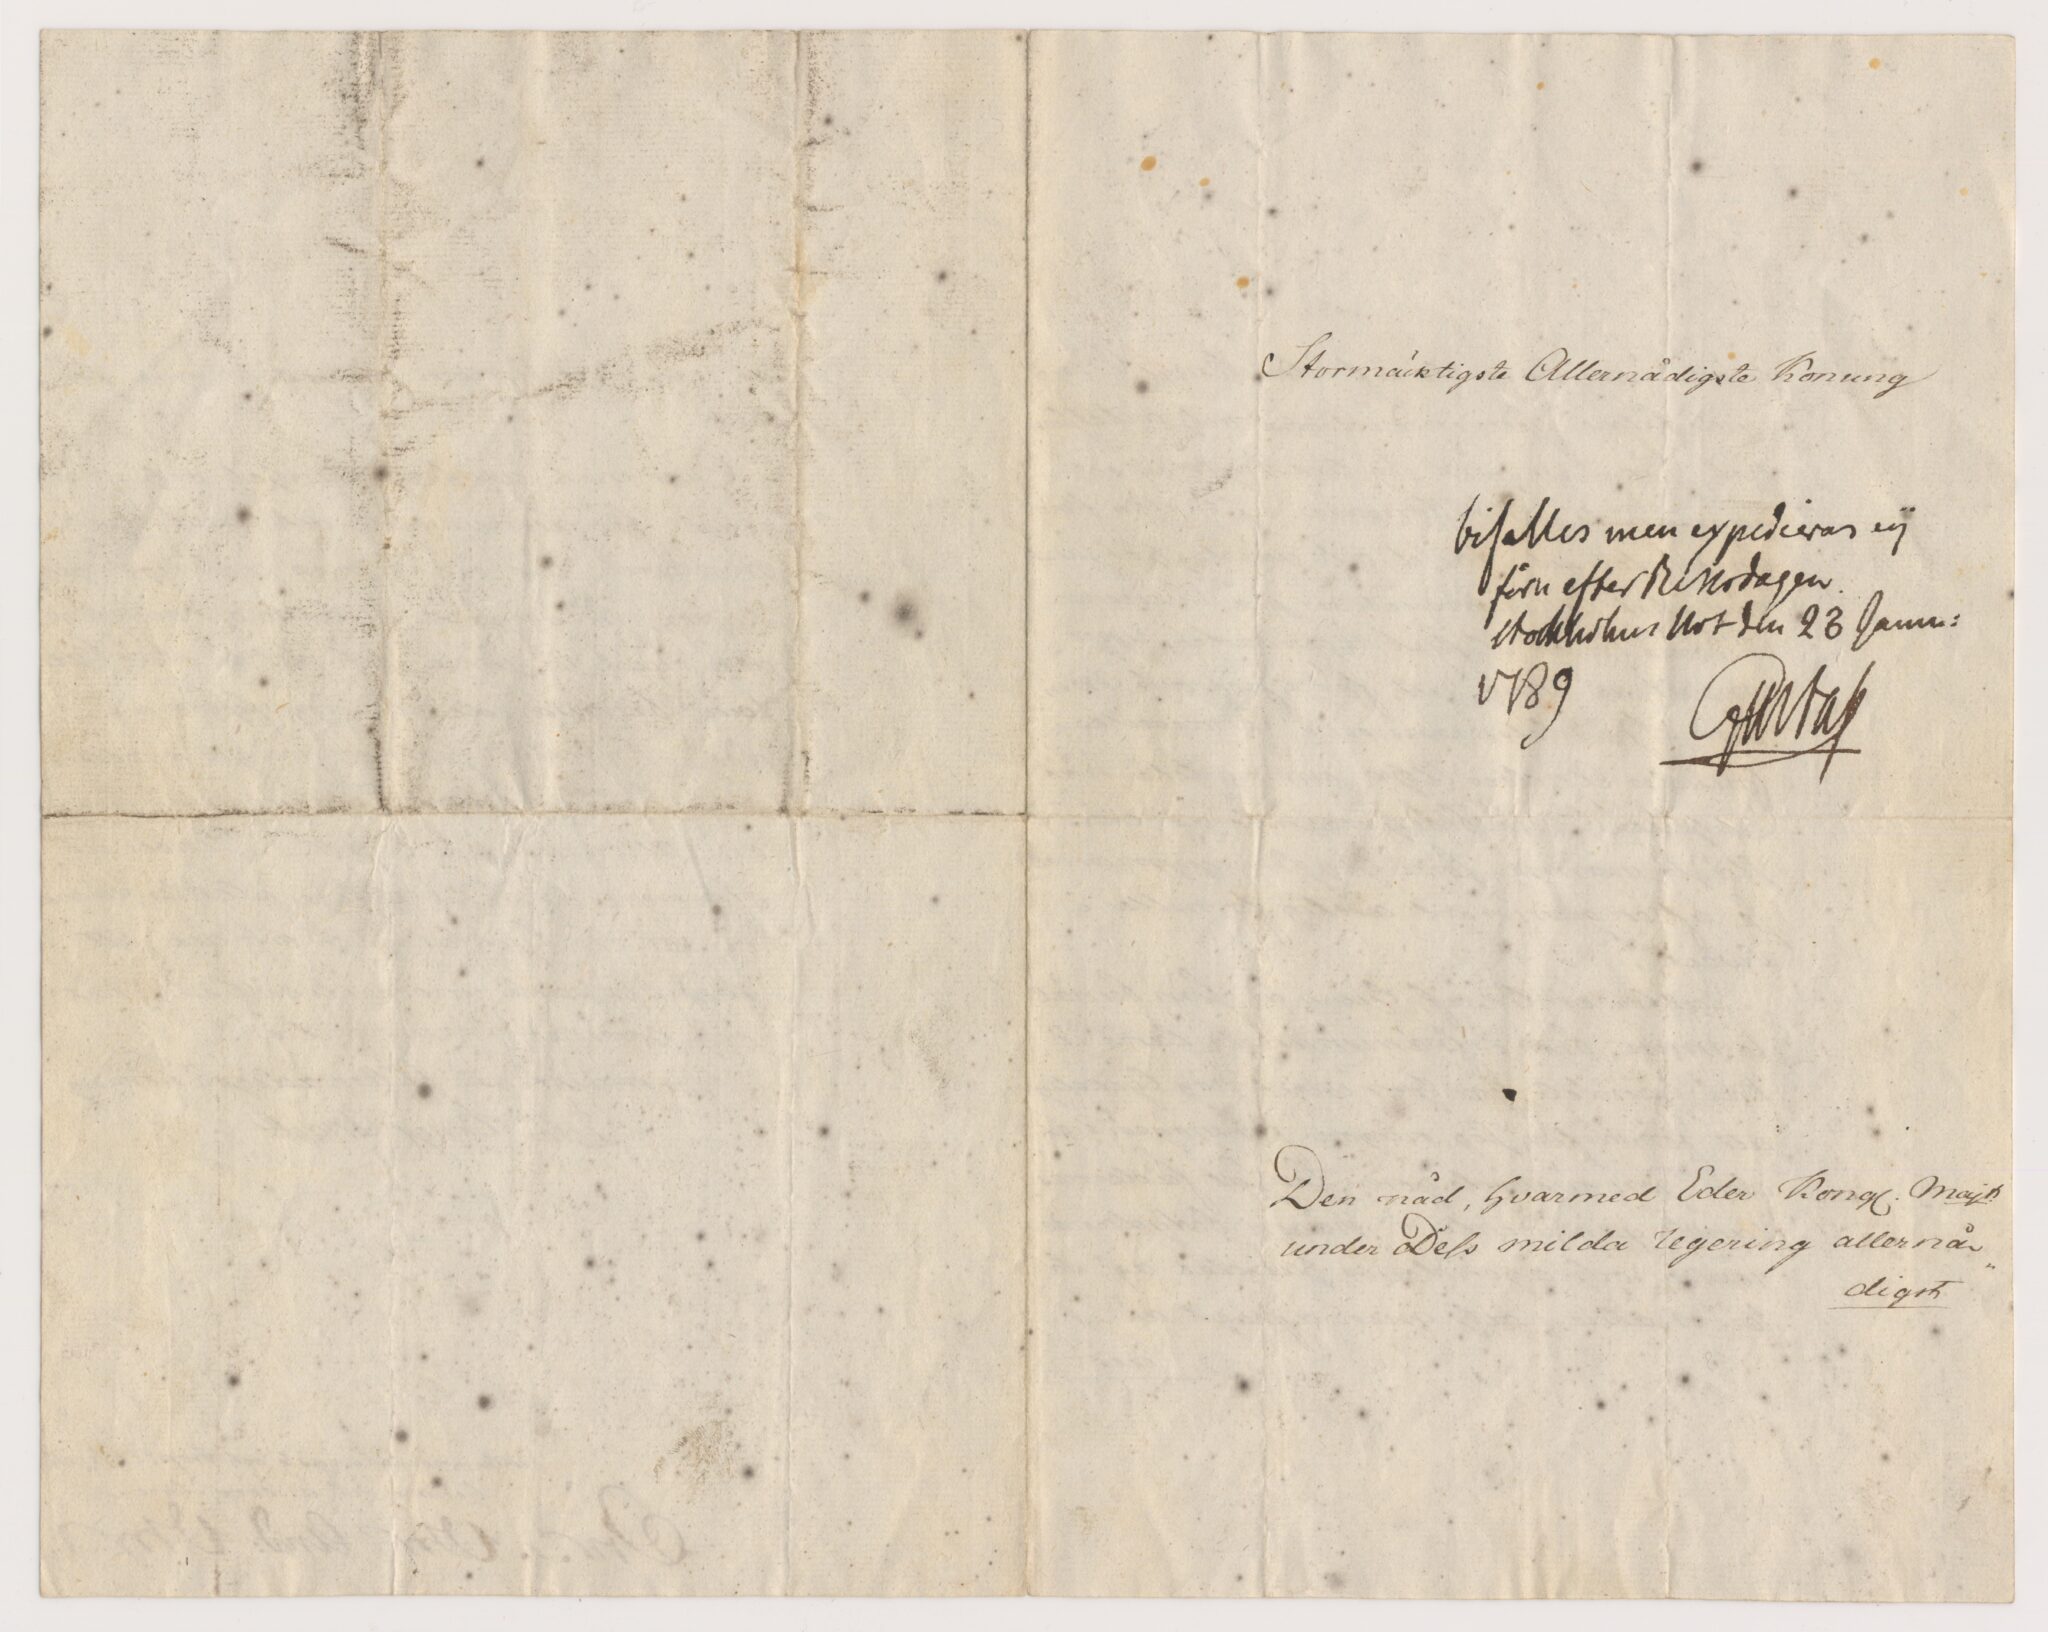 Stormäcktigste Allernådigste Konung
bifalles men expedieras eij
förn efter Riksdagen.
stockholms slot den 23 Janu:
1789
Gustaf
Den nåd, hvarmed Eder Kongl. Majts
under Dess milda regering allernå„
digst